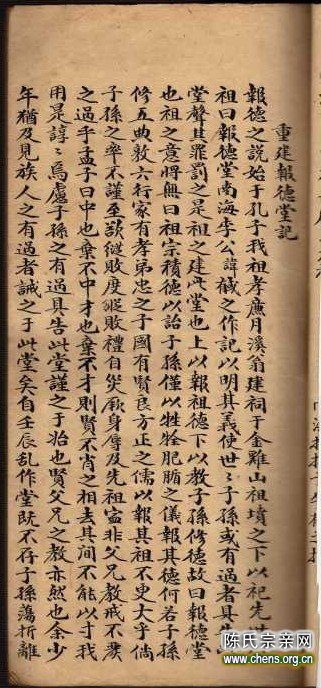 重建報德堂記
報德之說始于孔子我祖孝廉月溪翁建祠于金雞山祖墳之下以祀先
祖曰報德堂南海李公諱之作記以明其義使世〻子孫或有過者具告
堂聲其罪罰之是祖之建此堂也上以報祖德下以教子孫修德故曰報德堂
也祖之意將無曰祖宗積德以詒子孫僅以牲牷肥腯之儀報其德何若子孫
修五典敦六行家有孝弟忠之于國有賢良方正之儒以報其祖不更大乎倘
子孫之率不謹至欲縱敗度縱敗禮自災厥身辱及先祖寧非父兄教戒不
之過乎孟子曰中也棄不中才也棄不才則賢不肖之相去其間不能以寸我
用是諄〻焉慮子孫之有過具告此堂謹之于始也賢父兄之教亦然也余少
年猶及見族人之有過者誡之于此堂矣自壬辰乱作堂既不存子孫蕩折離
陈氏宗亲网
www.chens.org.cn